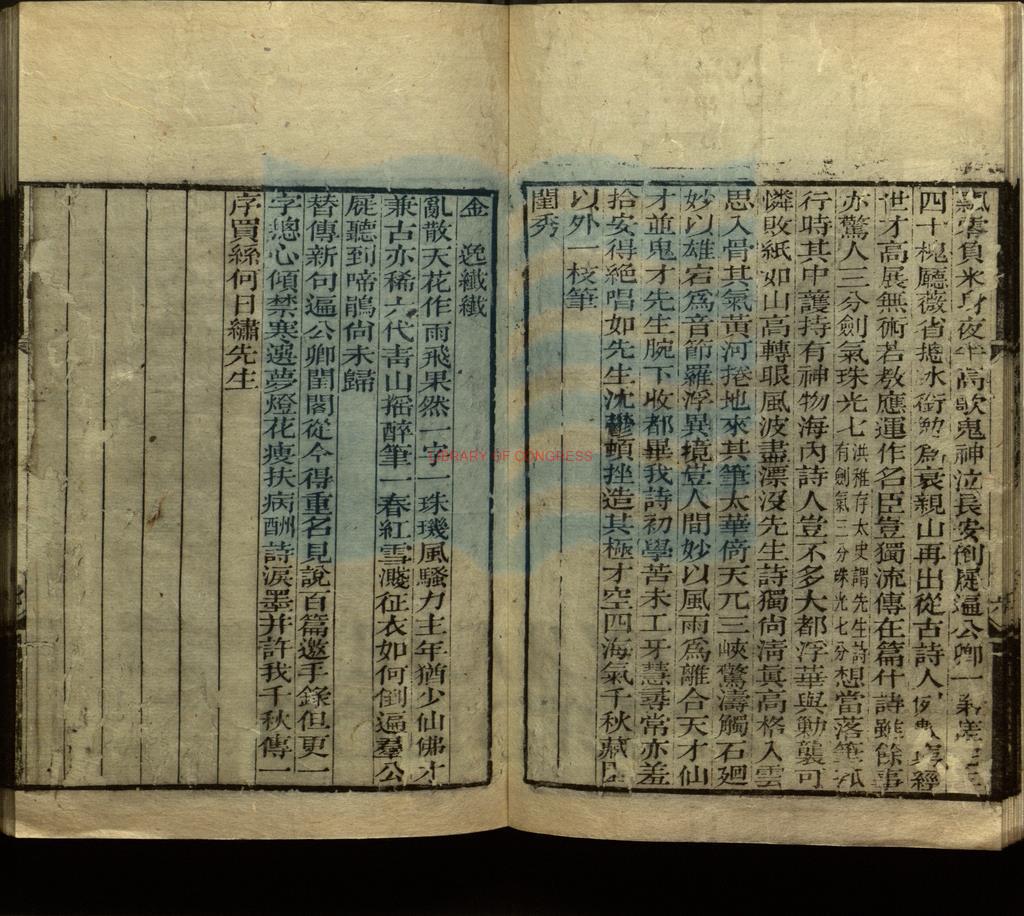 負米身夜半高歌鬼神泣長安倒屣遍公卿一
四十槐廳薇省摠冰銜勉為衰親山再出從古詩人例經
世才高展無術若教應運作名臣豈獨流傳在篇什詩雖餘事
亦驚人三分劍氣珠光七洪稚存太史謂先生詩有劍氣三分珠光七分想當落筆孤
行時其中護持有神物海內詩人豈不多大都浮華與勦襲可
憐敗紙如山高轉眼風波盡漂沒先生詩獨尚清真高格入雲
思入骨其氣黃河捲地來其筆太華倚天兀三峽驚濤觸石廻
妙以雄宕為音節羅浮異境豈人間妙以風雨為離合天才仙
才並鬼才先生腕下收都畢我詩初學苦未工牙慧尋常亦羞
拾安得絕唱如先生沈鬱頓挫造其極才空四海氣千秋藏
以外一枝筆
閨秀
金 逸纖纖
亂散天花作雨飛果然一字一珠璣風騷力主年猶少仙佛才
兼古亦稀六代青山搖醉筆一春紅雪濺征衣如何倒遍羣公
屣聽到啼鵑尚未歸
替傳新句遍公卿閨閣從今得重名見說百篇邀手錄但更一
字總心傾禁寒選夢燈花瘦扶病酬詩淚墨并許我千秋傳一
序買絲何日繡先生
LIBRARY OF CONGRESS